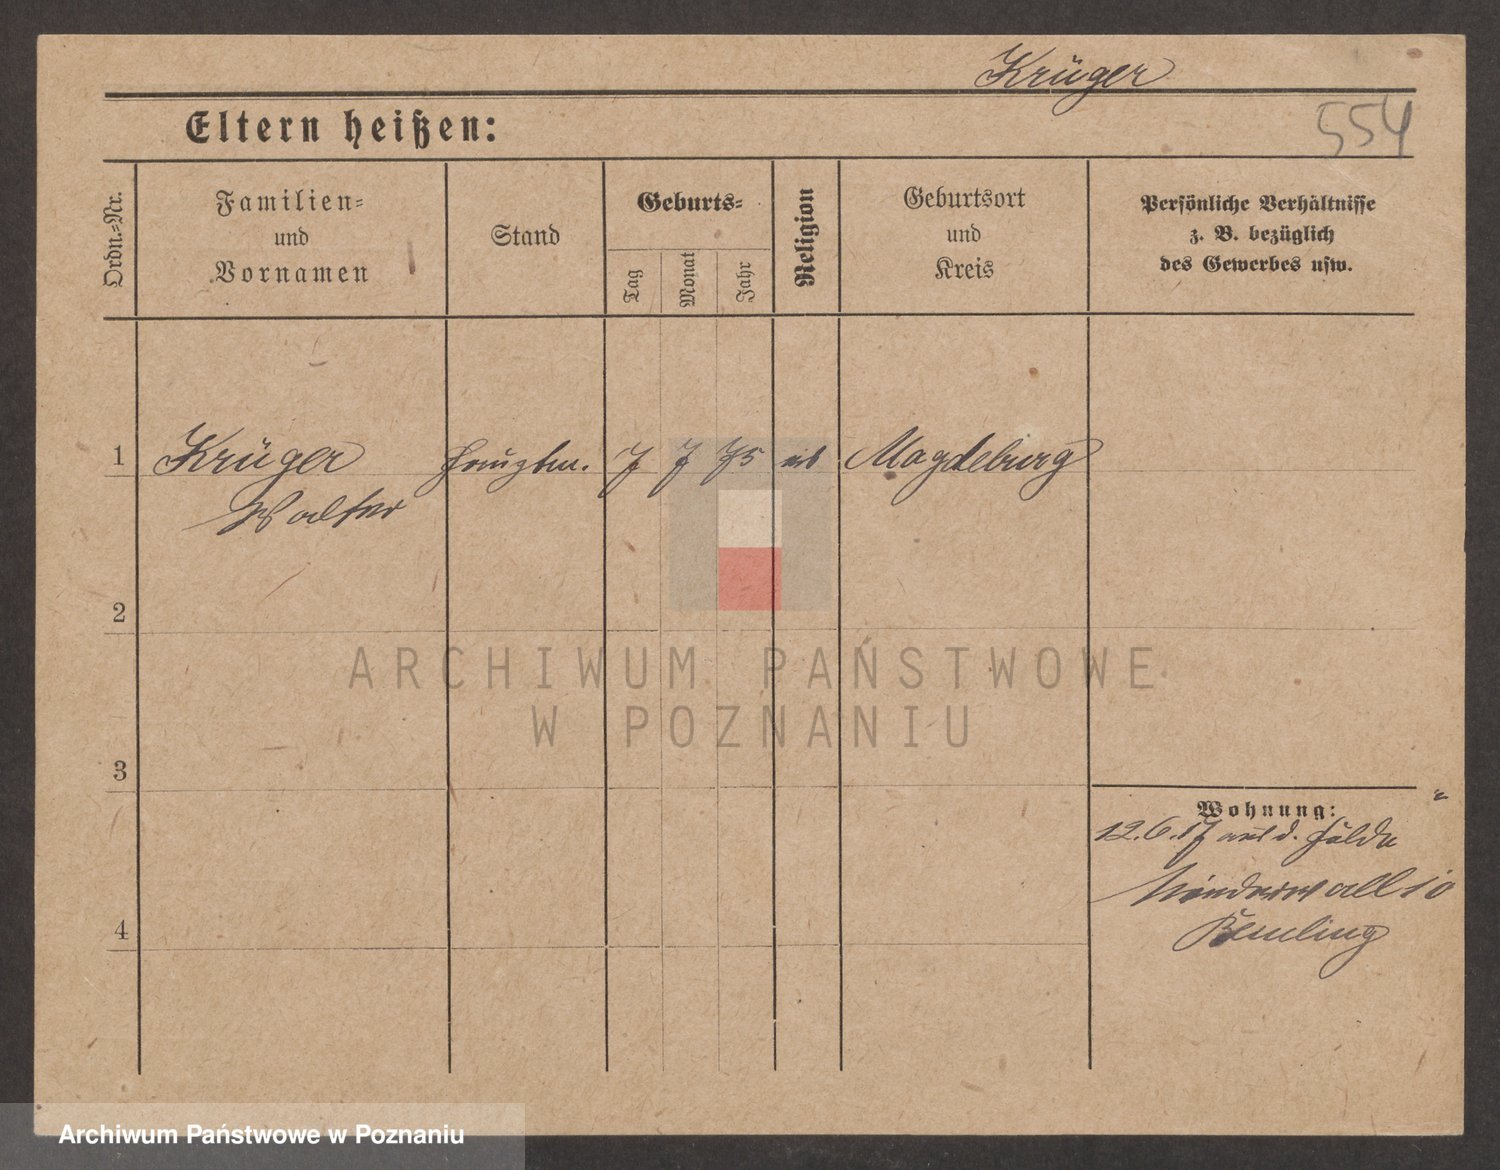 Krüger
Eltern heißen:
554
Ordn.-Nr.
Familien-
und
Vornamen
Stand
Geburts-
Tag
Monat
Jahr
Religion
Geburtsort
und
Kreis
Persönliche Verhältnisse
z. B. bezüglich
des Gewerbes usw.
1 Krüger Hauptm. 7 7 75 Magdeburg
Walter
2
ARCHIWUM PAŃSTWOWE
W POZNANIU
3
Wohnung:
12.6.17 aus d. Felde
10
4
Archiwum Państwowe w Poznaniu